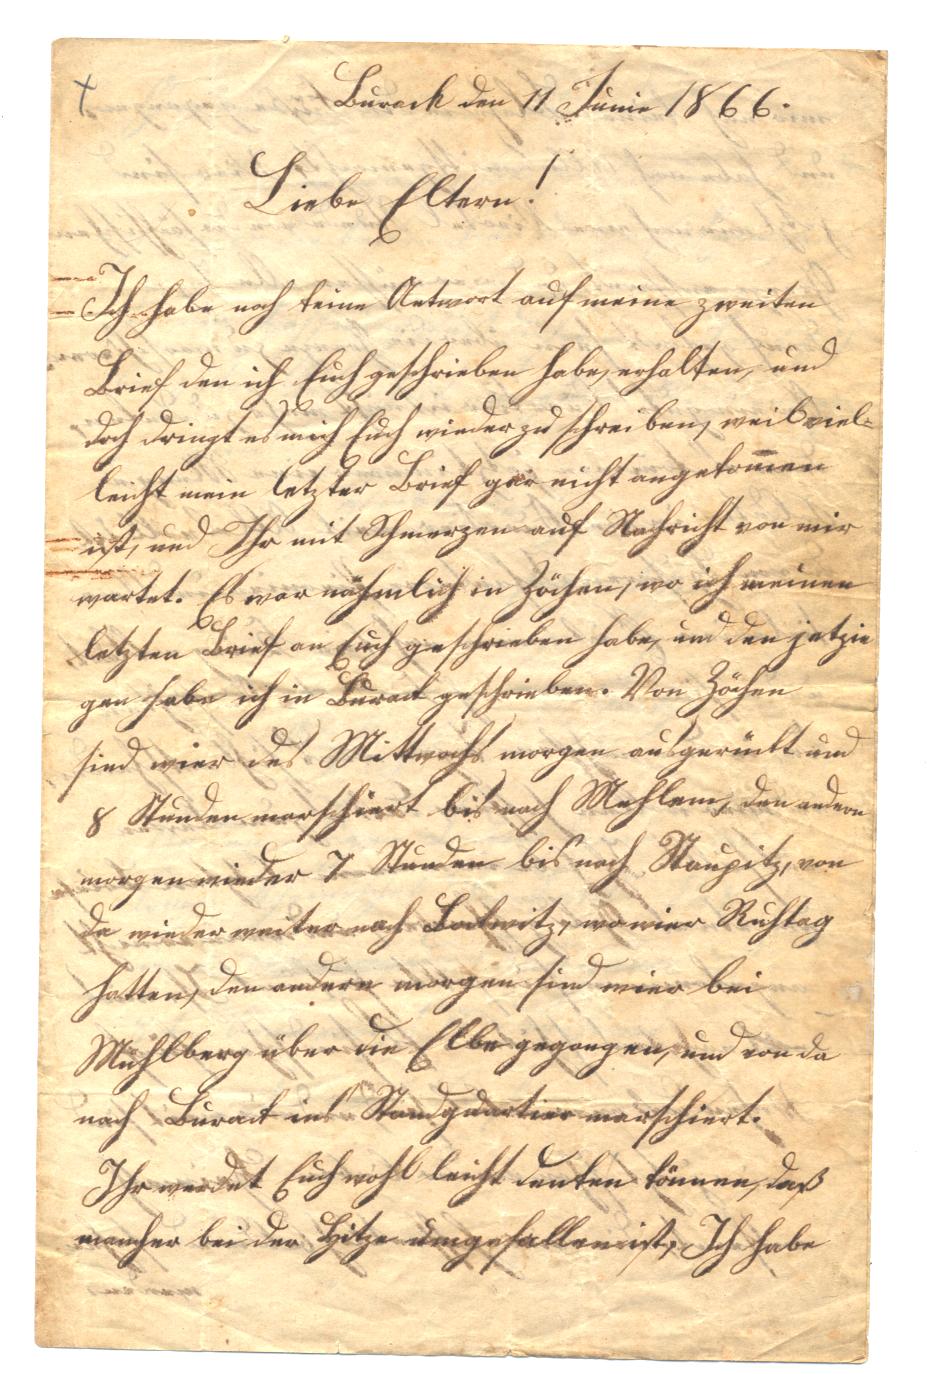 Burack den 11 Junie 1866.
Liebe Eltern!
Ich habe noch keine Antwort auf meine zweiten
Brief den ich Euch geschrieben habe, erhalten, und
doch dringt es mich Euch wieder zu schreiben, weil viel=
leicht mein letzter Brief gar nicht angekom̅en
ist, und Ihr mit Schmerzen auf Nachricht von mir
wartet. Es war nähmlich in Zöchen, wo ich meinen
letzten Brief an Euch geschrieben habe, und den jetzie
gen habe ich in Burack geschrieben. Von Zöchen
sind wier des Mittwochs morgen ausgerückt und
8 Stunden marschiert bis nach Mehlem, den andern
morgen wieder 7 Stunden bis nach Staupitz, von
da wieder weiter nach Bockwitz, wo wier Ruhtag
hatten, den andern morgen sind wier bei
Mühlberg über die Elbe gegangen, und von da
nach Burack ins Standquartier marschiert.
Ihr werdet Euch wohl leicht denken können, daß
mancher bei der Hitze umgefallen ist, Ich habe